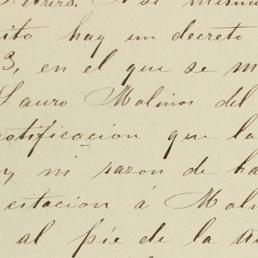 Febrero. Y se
ito hay un decreto
3, en el que se m
Lauro Molinos del
notificacion que la
y ni razon de ha
citacion á Mol
al píe de la a